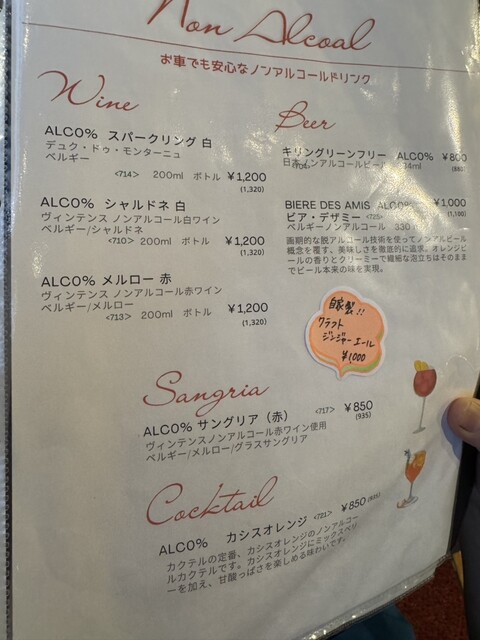 Non Alcoal
お車でも安心なノンアルコールドリンク
Wine
ALC0% スパークリング 白
デュク・ドゥ・モンターニュ
ベルギー
<714> 200ml ボトル ¥1,200
(1,320)
ALC0% シャルドネ 白
ヴィンテンス ノンアルコール白ワイン
ベルギー/シャルドネ
<710> 200ml ボトル ¥1,200
(1,320)
ALC0% メルロー 赤
ヴィンテンス ノンアルコール赤ワイン
ベルギー/メルロー
<713> 200ml ボトル ¥1,200
(1,320)
Beer
キリングリーンフリー ALC0% ¥800
日本ノンアルコールビール 34ml (880)
BIERE DES AMIS ALC0% ¥1,000
ビア・デザミー <725> (1,100)
ベルギーノンアルコール 330
画期的な脱アルコール技術を使ってノンアルビール
概念を覆す、美味しさを徹底的に追求。オレンジピ
ールの香りとクリーミーで繊細な泡立ちはそのまま
でビール本来の味を実現。
自家製!!
クラフト
ジンジャーエール
¥1000
Sangria
ALC0% サングリア（赤） <717> ¥850
(935)
ヴィンテンスノンアルコール赤ワイン使用
ベルギー/メルロー/グラスサングリア
Cocktail
ALC0% カシスオレンジ <721> ¥850 (935)
カクテルの定番、カシスオレンジのノンアルコー
ルカクテルです。カシスオレンジにミックスベリ
ーを加え、甘酸っぱさを楽しめる味わいです。